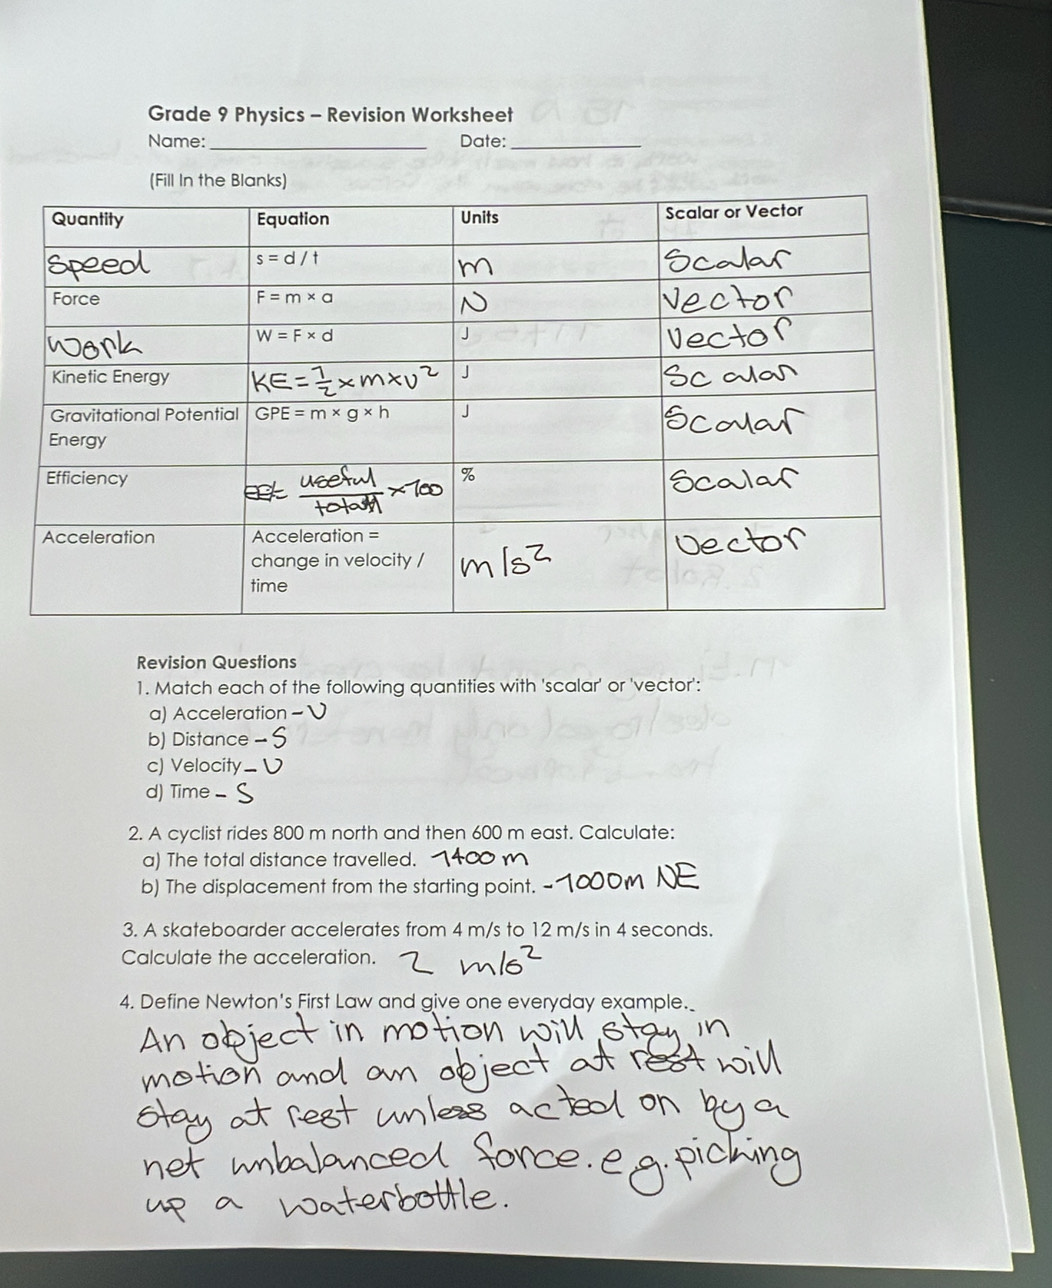 Grade 9 Physics – Revision Worksheet
Name: Date:
(Fill In the Blanks)
Quantity Equation Units Scalar or Vector
Speed s = d / t m Scalar
Force F = m × a N Vector
Work W = F × d J Vector
Kinetic Energy KE = 1/2 × m × v² J Scalar
Gravitational Potential GPE = m × g × h J Scalar
Energy
Efficiency useful/total × 100 % Scalar
Acceleration Acceleration = m/s² Vector
change in velocity /
time
Revision Questions
1. Match each of the following quantities with 'scalar' or 'vector':
a) Acceleration – V
b) Distance – S
c) Velocity – V
d) Time – S
2. A cyclist rides 800 m north and then 600 m east. Calculate:
a) The total distance travelled. 1400 m
b) The displacement from the starting point. - 1000m NE
3. A skateboarder accelerates from 4 m/s to 12 m/s in 4 seconds.
Calculate the acceleration. 2 m/s²
4. Define Newton's First Law and give one everyday example.
An object in motion will stay in
motion and an object at rest will
stay at rest unless acted on by a
net unbalanced force. e.g. picking
up a waterbottle.